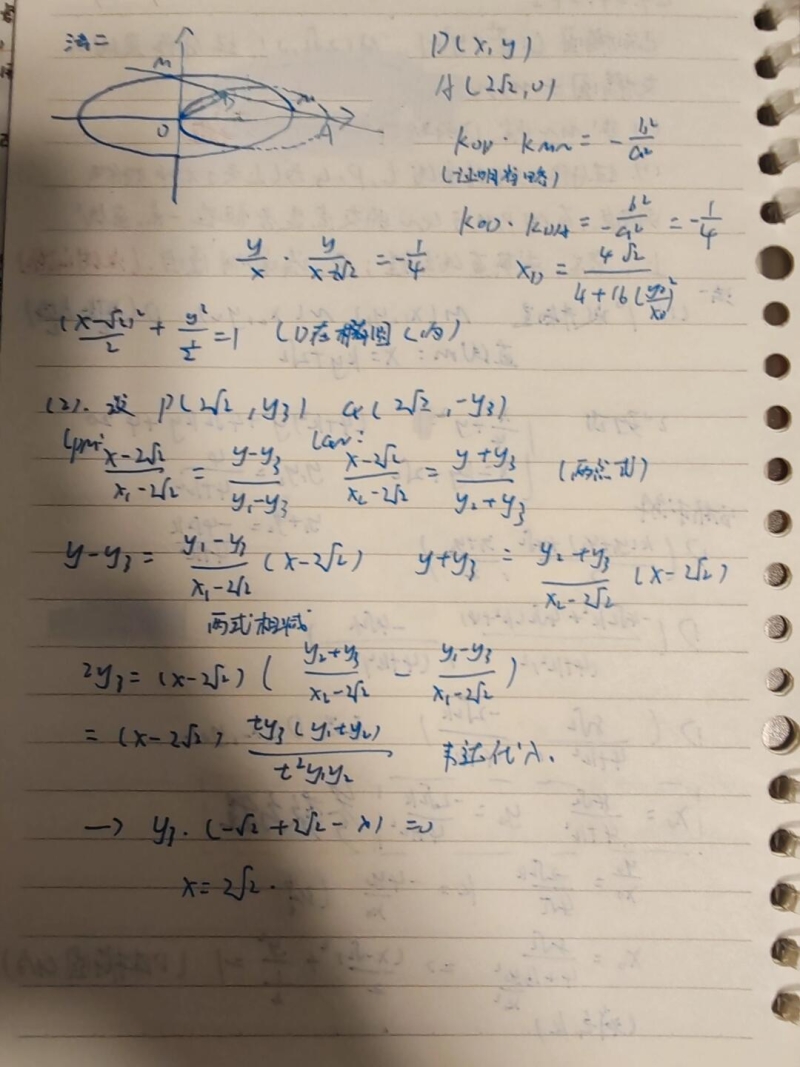 法二
D(x,y)
M
A(2√2,0)
O
A
k_OD · k_MN = -b²/a²
(证明省略)
k_OD · k_DA = -b²/a² = -1/4
y/x · y/(x-2√2) = -1/4
x_D = 4√2/(4+16(y_0/x_0)²)
(x-√2)²/2 + y²/(1/2) = 1 (D在椭圆C内)
(2). 设 P(2√2, y₃) Q(2√2, -y₃)
l_PM: (x-2√2)/(x₁-2√2) = (y-y₃)/(y₁-y₃) l_QN: (x-2√2)/(x₂-2√2) = (y+y₃)/(y₂+y₃) (两点式)
y-y₃ = (y₁-y₃)/(x₁-2√2) (x-2√2) y+y₃ = (y₂+y₃)/(x₂-2√2) (x-2√2)
两式相减
2y₃ = (x-2√2) ( (y₂+y₃)/(x₂-2√2) - (y₁-y₃)/(x₁-2√2) )
= (x-2√2) ty₃(y₁+y₂)/(t²y₁y₂) 韦达代入.
→ y₃·(-√2+2√2-x) =0
x=2√2.